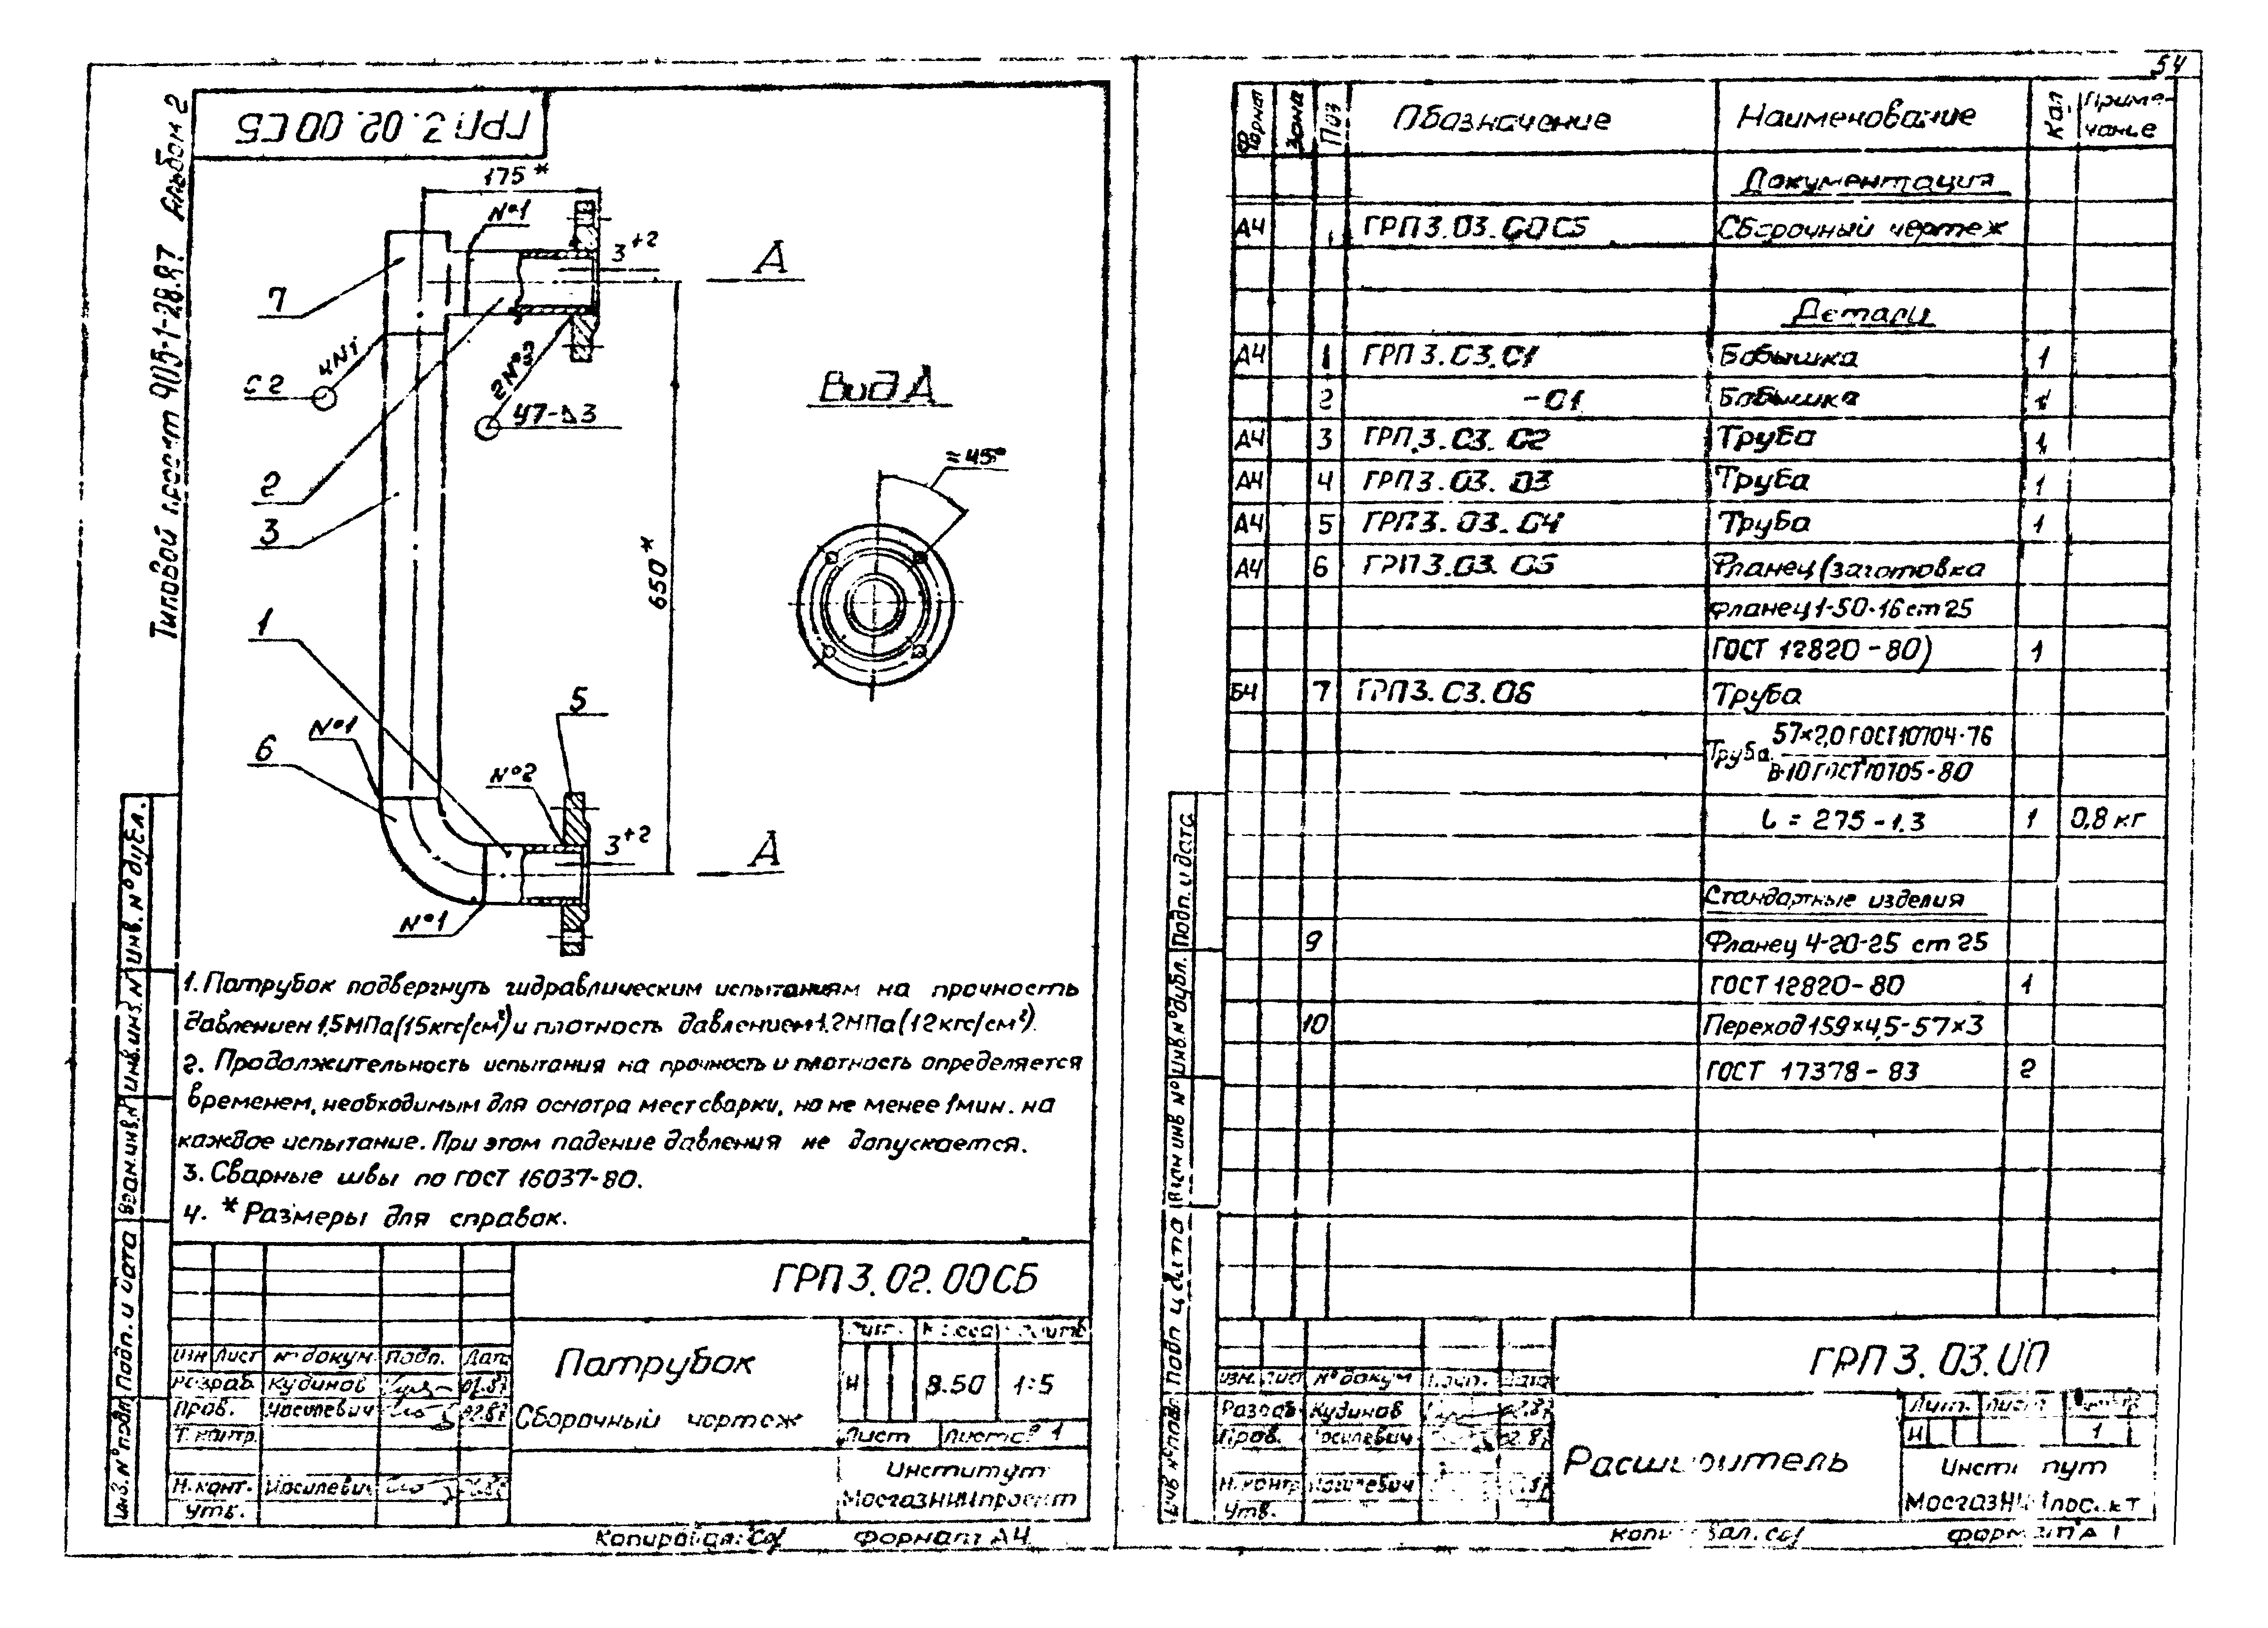 54
Типовой проект 905-1-28.87 Альбом 2
ГРП 3.02.00 СБ
175*
№1
3+2
А
7
4№1
С2
2№3
У7-Δ3
2
3
650*
Вид А
≈45°
1
5
№1
6
№2
3+2
А
№1
1. Патрубок подвергнуть гидравлическим испытаниям на прочность
давлением 1,5 МПа (15 кгс/см²) и плотность давлением 1.2 МПа (12 кгс/см²).
2. Продолжительность испытания на прочность и плотность определяется
временем, необходимым для осмотра мест сварки, но не менее 1 мин. на
каждое испытание. При этом падение давления не допускается.
3. Сварные швы по ГОСТ 16037-80.
4. * Размеры для справок.
Инв. № дубл.
Взам. инв. №
Подп. и дата
Инв. № подл
ГРП 3.02.00 СБ
Изм Лист № докум. Подп. Дата
Разраб. Кудинов 02.87
Пров. Василевич 02.87
Т. контр.
Н. конт. Василевич
Утв.
Патрубок
Сборочный чертеж
Лит. Масса Масштб
И 8.50 1:5
Лист Листов 1
Институт
МосгазНИИпроект
Копировал: Формат А4
Формат Зона Поз Обозначение Наименование Кол Приме-
чание
Документация
А4 ГРП 3.03.00 СБ Сборочный чертеж
Детали
А4 1 ГРП 3.03.01 Бобышка 1
2 -01 Бобышка 1
А4 3 ГРП.3.03.02 Труба 1
А4 4 ГРП 3.03.03 Труба 1
А4 5 ГРП 3.03.04 Труба 1
А4 6 ГРП 3.03.05 Фланец (заготовка
фланец 1-50-16 ст 25
ГОСТ 12820-80) 1
БЧ 7 ГРП 3.03.06 Труба
Труба 57×2,0 ГОСТ 10704-76
В-10 ГОСТ 10705-80
L = 275-1.3 1 0,8 кг
Стандартные изделия
9 Фланец 4-20-25 ст 25
ГОСТ 12820-80 1
10 Переход 159×4,5-57×3
ГОСТ 17378-83 2
Подп. и дата
Инв. № дубл.
Взам инв №
Подп и дата
Инв № подл
ГРП 3.03.00
Изм. Лист № докум Подп. Дата
Разраб Кудинов 02.87
Пров. Василевич 02.87
Н. контр Василевич
Утв.
Расширитель
Лит. Лист Листов
И 1
Институт
МосгазНИИпроект
Копировал. Формат А4